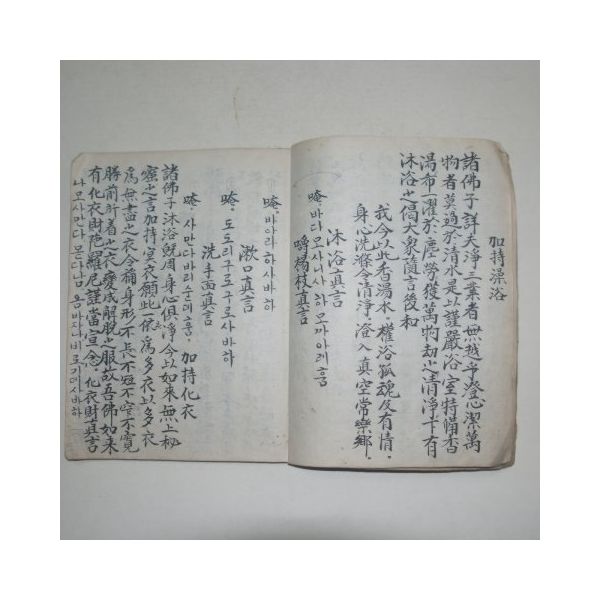 加持澡浴
諸佛子詳夫淨三業者無越乎澄心潔萬
物者莫過於清水是以謹嚴浴室特備香
湯希一濯於塵勞獲萬劫之清淨下有
沐浴之偈大衆隨言後和
我今以此香湯水 權浴孤魂及有情
身心洗滌令清淨 澄入眞空常樂鄕
沐浴眞言
唵 바다모사니사 하모까아레훔
嚼楊枝眞言
唵 바아라하사바하
漱口眞言
唵 도도리구로구로사바하
洗手面眞言
唵 사만다바리순데훔 加持化衣
諸佛子沐浴旣周身心俱淨今以如來無上秘
蜜之言加持冥衣願此一依爲多衣以多衣
爲無盡之衣令稱身形不長不短不窄不寬
勝前所着之衣變成解脫之服故吾佛如來
有化衣財陀羅尼謹當宣念 化衣財眞言
나모사만다 몯다남 옴바자나비로기데사바하